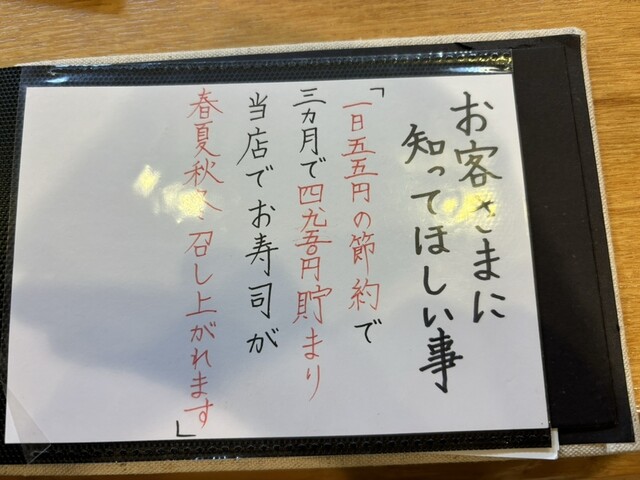 お客さまに
知ってほしい事
「一日五五円の節約で
三カ月で四九五〇円貯まり
当店でお寿司が
春夏秋冬召し上がれます」